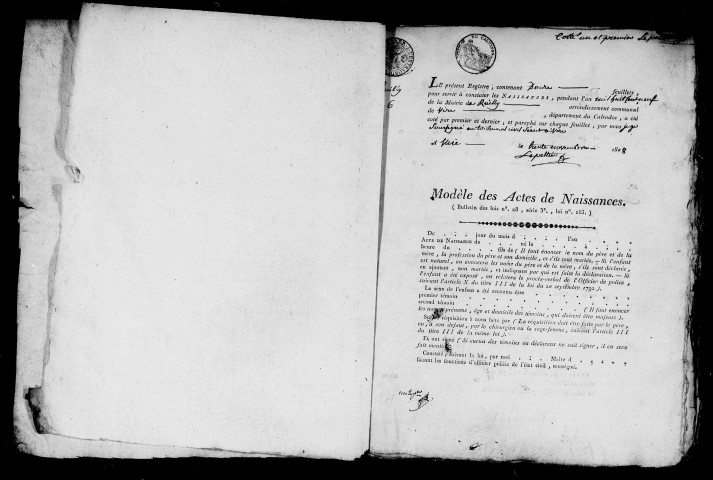 Cotté un et premier
LE présent Registre, contenant Douze feuillets,
pour servir à constater les NAISSANCES, pendant l'an mil huit cent neuf
de la Mairie de Reilly arrondissement communal
de Vire, département du Calvados, a été
coté par premier et dernier, et paraphé sur chaque feuillet, par nous juge
Soussigné au tribunal civil séant à Vire
A Vire le trente novembre 1808
Modèle des Actes de Naissances.
( Bulletin des lois n°. 28, série 3e., loi n°. 183. )
De . . . jour du mois d . . . . l'an . . . .
ACTE DE NAISSANCE de . . . né le . . .
heure du . . . fils de ( Il faut énoncer le nom du père et de la
mère, la profession du père et son domicile, et s'ils sont mariés. — Si l'enfant
est naturel, on énoncera les noms du père et de la mère, s'ils sont déclarés,
en ajoutant, non mariés, et indiquant par qui est faite la déclaration. — Si
l'enfant a été exposé, on relatera le procès-verbal de l'Officier de police,
suivant l'article X du titre III de la loi du 20 septembre 1792. )
Le sexe de l'enfant a été reconnu être . . .
premier témoin
second témoin . . . ( Il faut énoncer
les noms, prénoms, âge et domicile des témoins, qui doivent être majeurs ).
Sur la réquisition à nous faite par ( La réquisition doit être faite par le père,
ou, à son défaut, par le chirurgien ou la sage-femme, suivant l'article III
du titre III de la même loi ).
Et ont signé ( Si aucun des témoins ou déclarans ne sait signer, il en sera
fait mention ).
Constaté, suivant la loi, par moi . . . Maire d . . . .
faisant les fonctions d'officier public de l'état civil, soussigné.